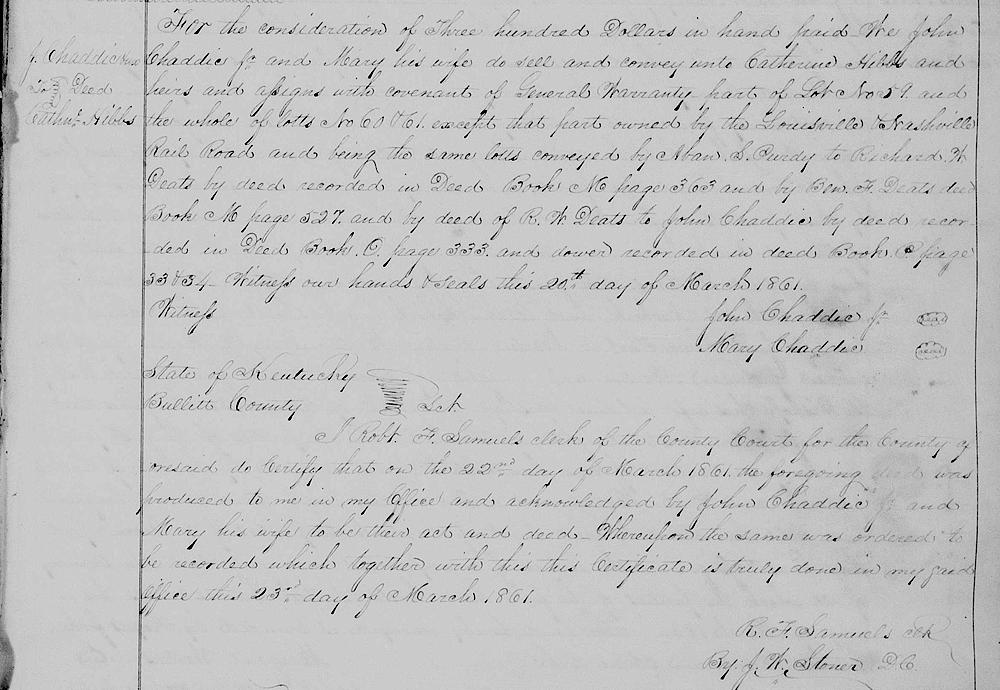 For the consideration of Three hundred Dollars in hand paid We John
J. Chaddic
To Deed
Cathn. Hibbs
Chaddic Jr and Mary his wife do sell and convey unto Catherine Hibbs and
heirs and assigns with covenant of General Warranty part of Lot No 59. and
the whole of lotts No 60 & 61. except that part owned by the Louisville & Nashville
Rail Road and being the same lotts conveyed by Aban. S. Purdy to Richard. W
Deats by deed recorded in Deed Book M page 363 and by Ben. F. Deats
Book M page 527. and by deed of R. W. Deats to John Chaddic by deed recor-
ded in Deed Book. O. page 333. and dower recorded in deed Book. P page
33 & 34 - Witness our hands & seals this 20th day of March 1861.
Witness
John Chaddic Jr
Mary Chaddic
State of Kentucky
Bullitt County Sct
I Robt. F. Samuels clerk of the County Court for the County a
foresaid do Certify that on the 22nd day of March 1861. the foregoing deed was
produced to me in my Office and acknowledged by John Chaddic Jr and
Mary his wife to be their act and deed - Whereupon the same was ordered to
be recorded which together with this this Certificate is truly done in my said
Office this 23rd day of March 1861.
R. F. Samuels clk
By J. W. Stoner D.C.